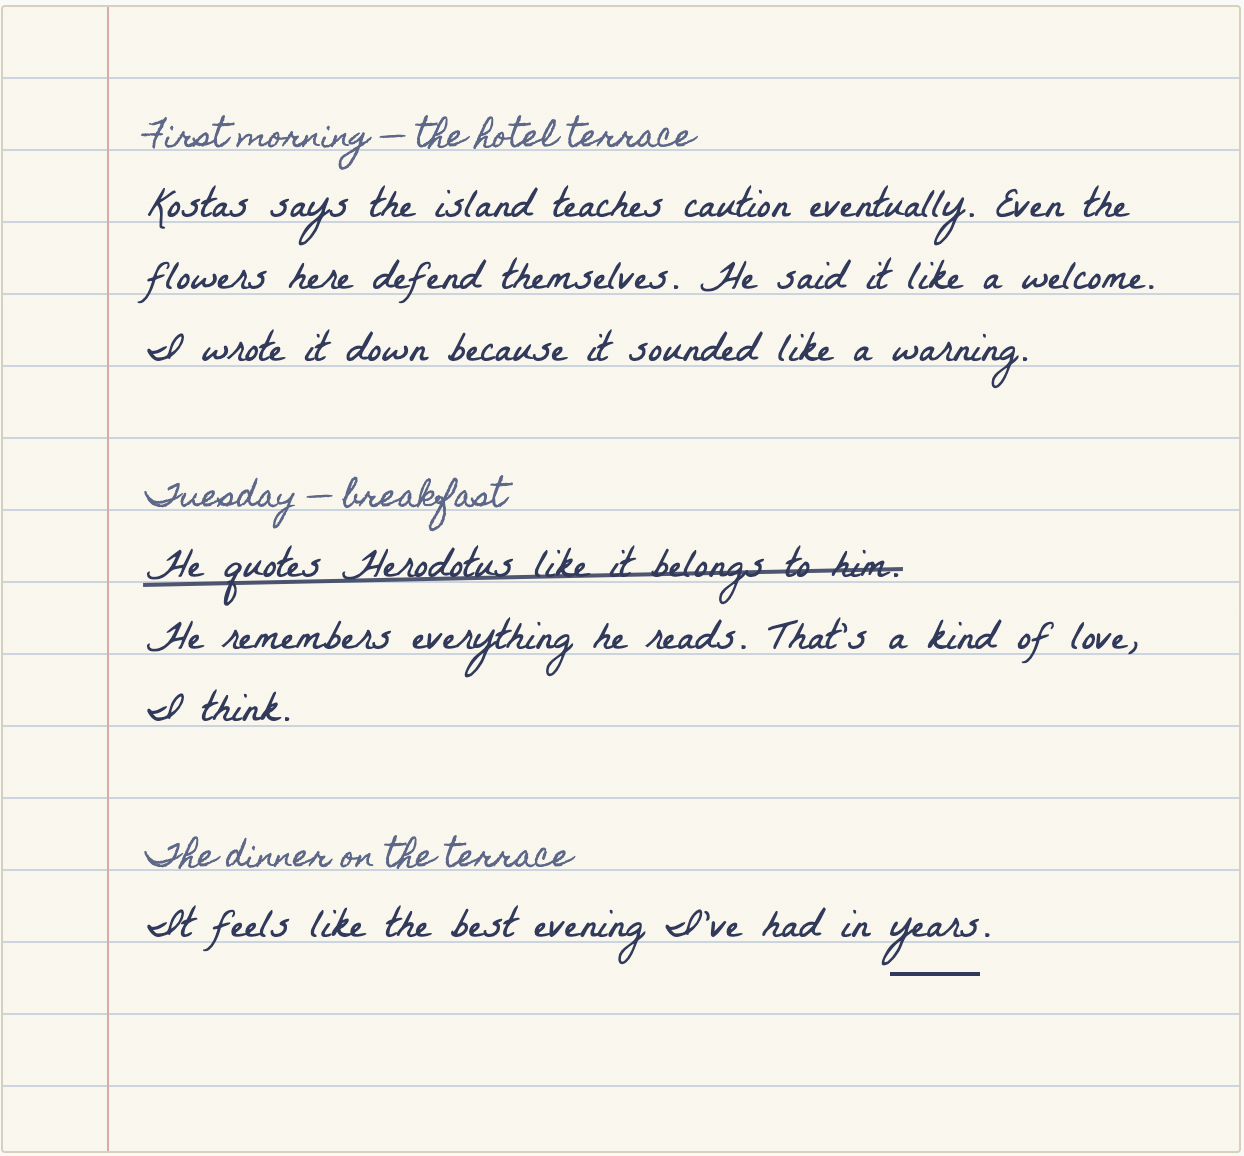 First morning — the hotel terrace
Kostas says the island teaches caution eventually. Even the
flowers here defend themselves. He said it like a welcome.
I wrote it down because it sounded like a warning.
Tuesday — breakfast
He quotes Herodotus like it belongs to him.
He remembers everything he reads. That's a kind of love,
I think.
The dinner on the terrace
It feels like the best evening I've had in years.